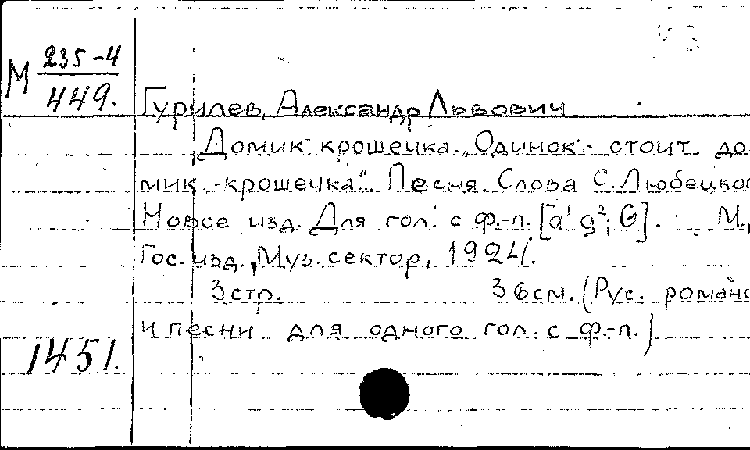 М 235-4
449.
Гурилев, Александр Львович
Домик-крошечка. „Одинок стоит до-
мик-крошечка". Песня. Слова С. Любецкого
Новое изд. Для гол. с ф-п. [a¹ g²; G]. М.,
Гос. изд., Муз. сектор, 1924.
3 стр. 36 см. (Рус. романс
и песни для одного гол. с ф-п.)
1451.